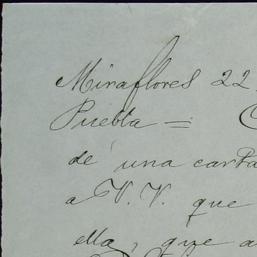 Miraflores 22
Puebla =
de una carta
a V. V. que
ella, que a